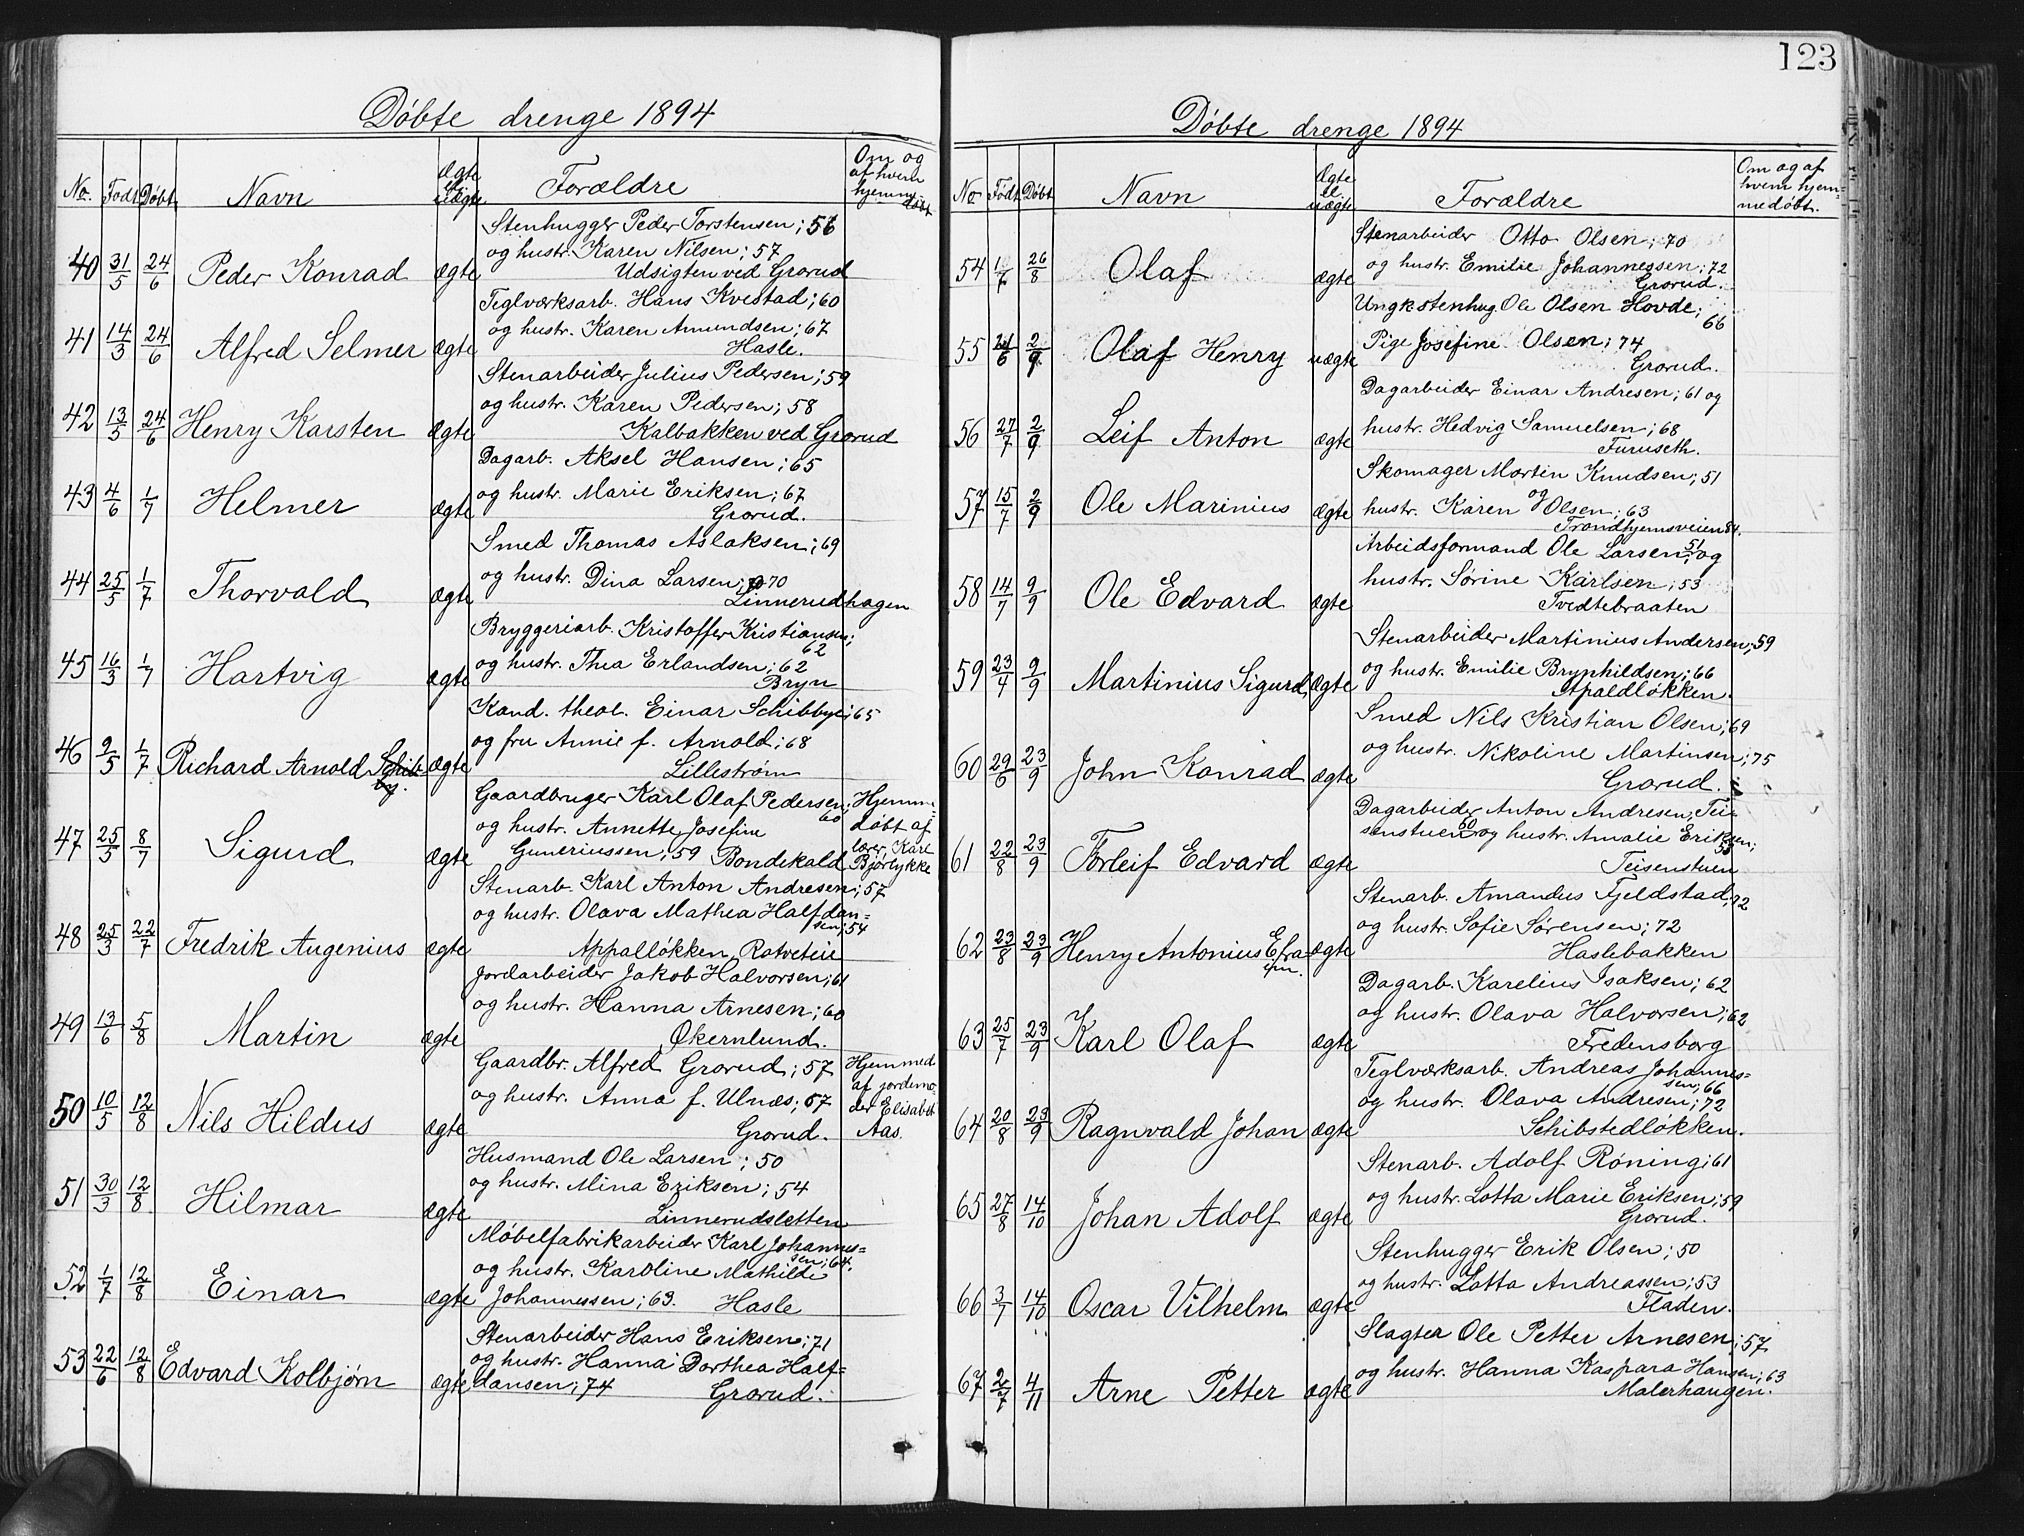 Døbte drenge 1894
No. Født Døbt Navn Ægte el. uægte Forældre Om og af hvem hjemmedøbt
40 31/5 24/6 Peder Konrad ægte Stenhugger Peder Torstensen; 56
og hustr. Karen Nilsen; 57
Udsigten ved Grorud
41 14/3 24/6 Alfred Selmer ægte Teglværksarb. Hans Kvestad; 60
og hustr. Karen Amundsen; 67
Hasle.
42 13/5 24/6 Henry Karsten ægte Stenarbeider Julius Pedersen; 59
og hustr. Karen Pedersen; 58
Kalbakken ved Grorud
43 4/6 1/7 Helmer ægte Dagarb. Aksel Hansen; 65
og hustr. Marie Eriksen; 67
Grorud.
44 25/5 1/7 Thorvald ægte Smed Thomas Aslaksen; 69
og hustr. Dina Larsen; 70
Linnerudhagen
45 16/3 1/7 Hartvig ægte Bryggeriarb. Kristoffer Kristiansen;
62
og hustr. Thea Erlandsen; 62
Bryn
46 9/5 1/7 Richard Arnold Schibbye. ægte Kand. theol. Einar Schibbye; 65
og fru Annie f. Arnold; 68
Lillestrøm
47 25/5 8/7 Sigurd ægte Gaardbruger Karl Olaf Pedersen; 60
og hustr. Annette Josefine
Guneriussen; 59 Bondekald
Hjemmedøbt af
lærer Karl
Bjørlykke
48 25/3 22/7 Fredrik Augenius ægte Stenarb. Karl Anton Andresen; 57
og hustr. Olava Mathea Halfdan=
sen; 54
Appalløkken, Ratveteit
49 13/6 5/8 Martin ægte Jordarbeider Jakob Halvorsen; 61
og hustr. Hanna Arnesen; 60
Økernlund.
50 10/5 12/8 Nils Hildus ægte Gaardbr. Alfred Grorud; 57
og hustr. Anna f. Ulnæs; 67
Grorud.
Hjemmed
af jordemo=
der Elisabet
Aas.
51 30/3 12/8 Hilmar ægte Husmand Ole Larsen; 50
og hustr. Mina Eriksen; 54
Linnerudsletten
52 1/7 12/8 Einar ægte Møbelfabrikarbeider Karl Johannes=
sen; 64.
og hustr. Karoline Mathilde
Johannessen; 63. Hasle
53 22/6 12/8 Edvard Kolbjørn ægte Stenarbeider Hans Eriksen; 71
og hustr. Hanna Dorthea Half=
dansen; 74 Grorud.
123
Døbte drenge 1894
No Født Døbt Navn Ægte el. uægte Forældre Om og af hvem hjem=medøbt.
54 1/7 26/8 Olaf ægte Stenarbeider Otto Olsen; 70
og hustr. Emilie Johannessen; 72
Grorud.
55 21/6 2/9 Olaf Henry uægte Ungk. stenhug. Ole Olsen Hovde;
66
Pige Josefine Olsen; 74
Grorud.
56 27/7 2/9 Leif Anton ægte Dagarbeider Einar Andresen; 61 og
hustr. Hedvig Samuelsen; 68
Furuseth.
57 15/7 2/9 Ole Marinius ægte Skomager Martin Knudsen; 51
og
hustr. Karen Olsen; 63
Trondhjemsveien 84.
58 14/7 9/9 Ole Edvard ægte Arbeidsformand Ole Larsen; 51 og
hustr. Sørine Karlsen; 53
Tvedtebraaten
59 23/4 9/9 Martinius Sigurd ægte Stenarbeider Martinius Andersen; 59
og hustr. Emilie Brynhildsen; 66
Apaldløkken.
60 29/6 23/9 John Konrad ægte Smed Nils Kristian Olsen; 69
og hustr. Nikoline Martinsen; 75
Grorud.
61 22/8 23/9 Torleif Edvard ægte Dagarbeider Anton Andresen, Tei=
senstuen 60 og hustr. Amalie Eriksen;
55
Teisenstuen
62 23/8 23/9 Henry Antonius Efra=
im. ægte Stenarb. Amandus Fjeldstad; 72
og hustr. Sofie Sørensen; 72
Haslebakken
63 25/7 23/9 Karl Olaf ægte Dagarb. Karelius Isaksen; 62
og hustr. Olava Halvorsen; 62
Fredensborg
64 20/8 23/9 Ragnvald Johan ægte Teglværksarb. Andreas Johannes=
sen; 66
og hustr. Olava Andresen; 72
Schibstedløkken.
65 27/8 14/10 Johan Adolf ægte Stenarb. Adolf Röning; 61
og hustr. Lotta Marie Eriksen; 59
Grorud.
66 3/7 14/10 Oscar Vilhelm ægte Stenhugger Erik Olsen; 50
og hustr. Lotta Andreassen; 53
Fladen.
67 2/7 4/11 Arne Petter ægte Slagter Ole Petter Arnesen; 57
og hustr. Hanna Kaspara Hansen; 63
Malerhaugen.